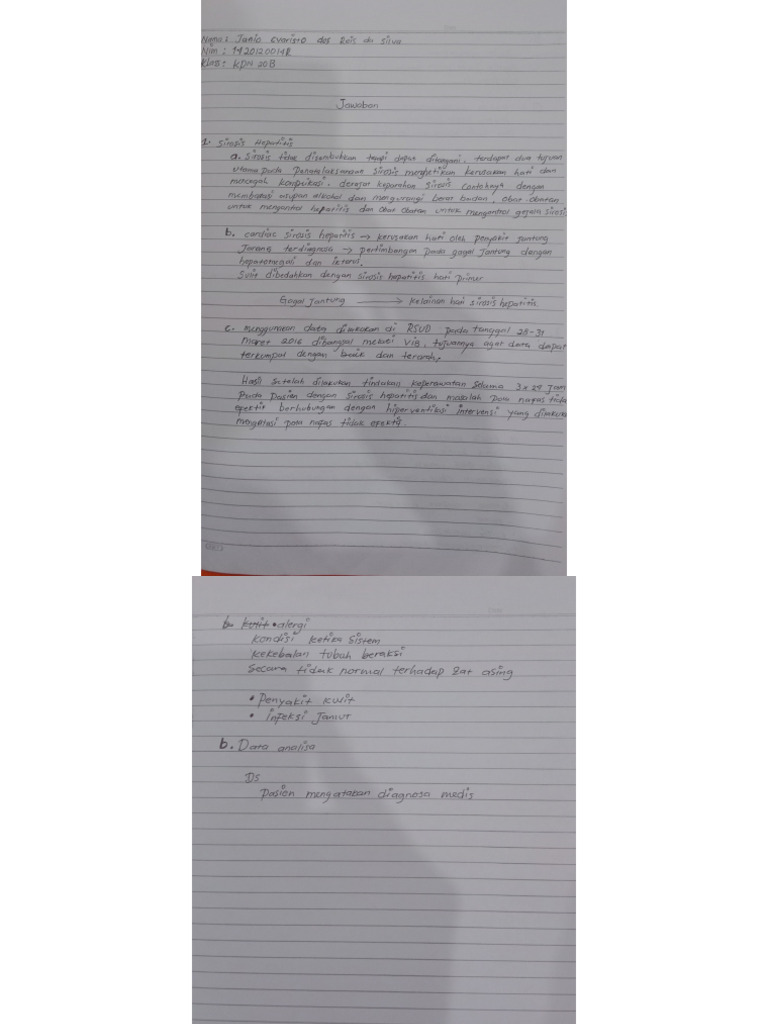 Nama : Junio Evaristo dos Reis da Silva
Nim : 142012001
Klas : KPN 20B
Jawaban
1. Sirosis Hepatitis
a. Sirosis tidak disembuhkan tapi dapat ditangani. terdapat dua tujuan
utama pada Penatalaksanane sirosis menghetikan kerusakan hati dan
mencegah komplikasi. derajat keparahan Sirosis contohnya dengan
membatasi asupan alkohol dan mengurangi berat badan, obat-obatan
untuk mengontrol hepatitis dan obat obatan untuk mengontrol gejala sirosis
b. cardiac sirosis hepatitis → kerusakan hati oleh penyakit jantung
Jarang terdiagnosa → pertimbangan pada gagal Jantung dengan
hepatomegali dan
Sulit dibedahkan dengan sirosis hepatitis hati primer
Gagal Jantung → kelainan hati sirosis hepatitis.
c. menggunakan data dilakukan di RSUD pada tanggal 28-31
Maret 2016 tujuannya agat data dapat
terkumpul dengan baik dan terarah.
Hasil setelah dilakukan tindakan keperawatan selama 3x24 Jam
pada pasien dengan sirosis hepatitis dan masalah pola napas tida
efektif berhubungan dengan hiperventilasi intervensi yang dilakuka
mengatasi pola napas tidak efektif.
b. alergi
Kondisi ketika sistem
kekebalan tubuh beraksi
Secara tidak normal terhadap zat asing
• Penyakit kulit
• infeksi Jamur
b. Data analisa
Ds
Pasien mengatakan diagnosa medis